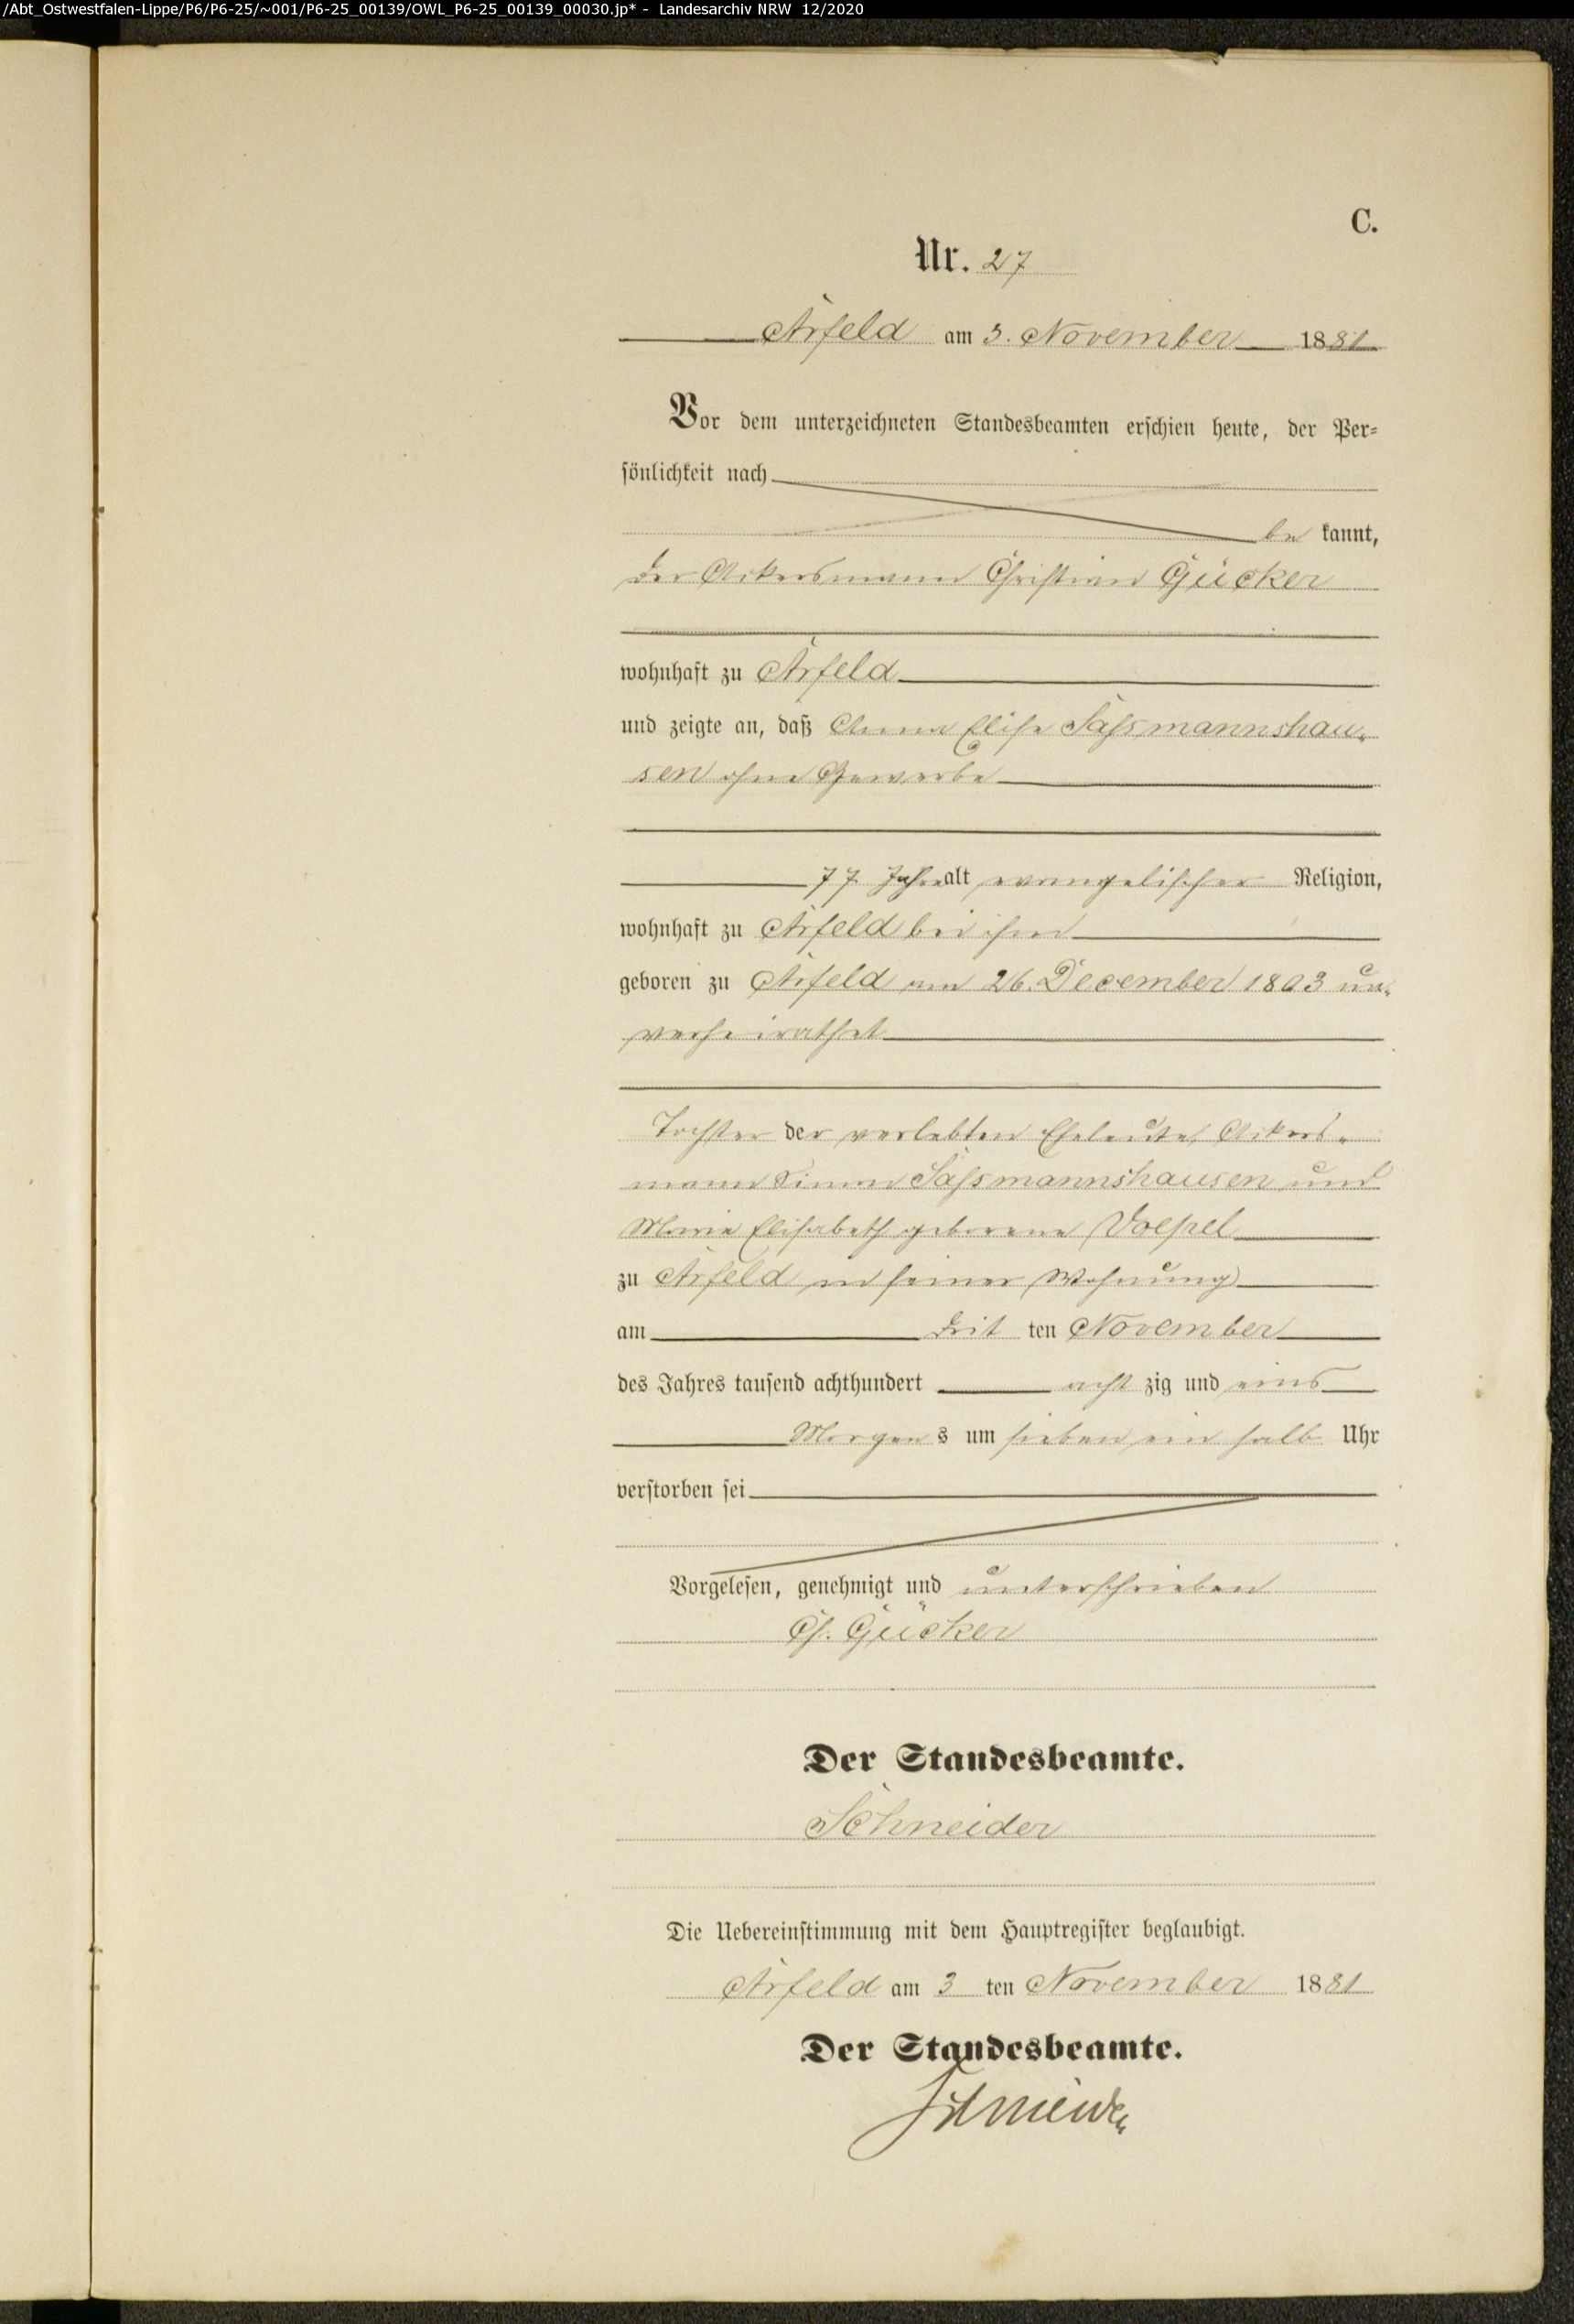 /Abt_Ostwestfalen-Lippe/P6/P6-25/~001/P6-25_00139/OWL_P6-25_00139_00030.jp* - Landesarchiv NRW 12/2020
C.
Nr. 27
Arfeld am 3. November 1881
Vor dem unterzeichneten Standesbeamten erschien heute, der Per-
sönlichkeit nach
be kannt,
der Ackersmann Christian Gücker
wohnhaft zu Arfeld
und zeigte an, daß Anna Elise Saßmannshau-
sen ohne Gewerbe
77 Jahre alt evangelischer Religion,
wohnhaft zu Arfeld bei ihm
geboren zu Arfeld am 26. December 1803 un-
verheirathet
Tochter der verlebten Eheleute, Ackers-
mann Simon Saßmannshausen und
Marie Elisabeth geborene Voepel
zu Arfeld in seiner Wohnung
am drit ten November
des Jahres tausend achthundert acht zig und eins
Morgen s um sieben ein halb Uhr
verstorben sei
Vorgelesen, genehmigt und unterschrieben
Ch. Gücker
Der Standesbeamte.
Schneider
Die Uebereinstimmung mit dem Hauptregister beglaubigt.
Arfeld am 3 ten November 1881
Der Standesbeamte.
Schneider